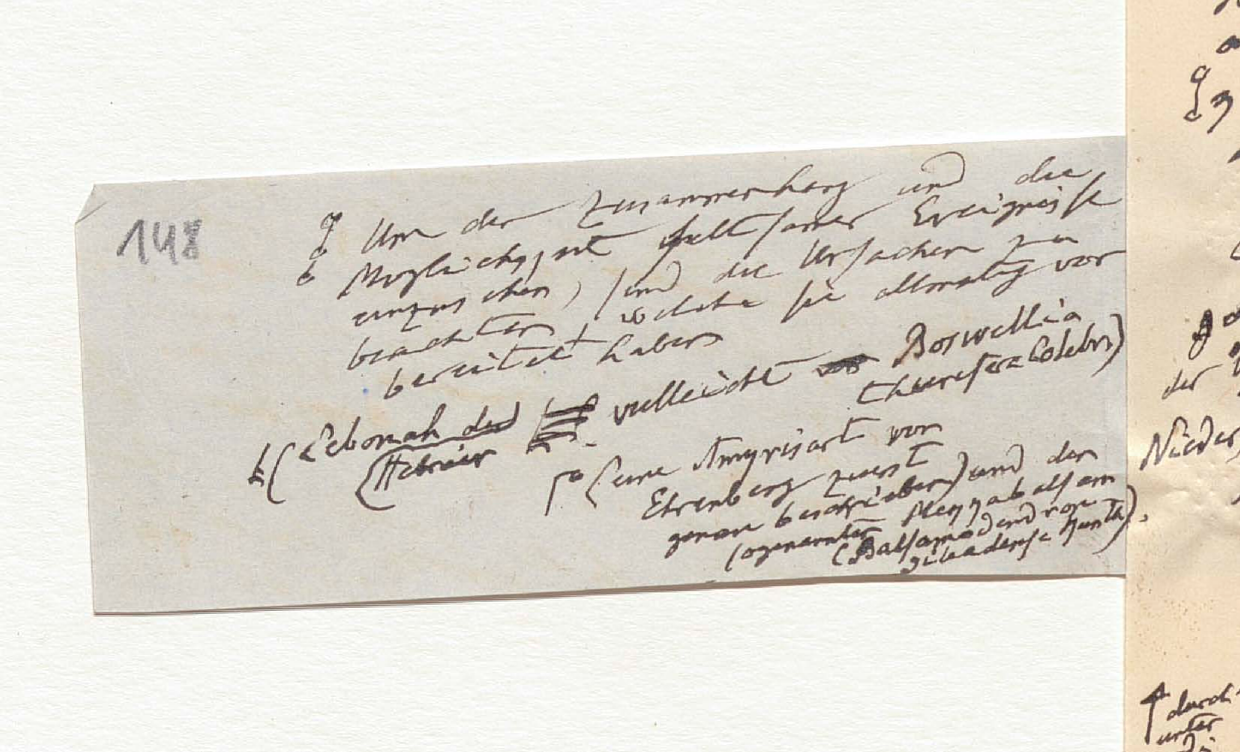 148
Um den Zusammenhang und die
Möglichkeit seltsamer Ereignisse
einzusehen, sind die Ursachen zu
beachten welche sie allmälig vor
bereitet haben
(Lebonah der vielleicht Boswellia
(Hebräer thurifera Colebr)
(eine Amyrisart von
Ehrenberg zuerst
genau beschrieben) und der
sogenannte Meccabalsam
(Balsamodendron
gileadense Kunth).
der
Nieder
durch
unter